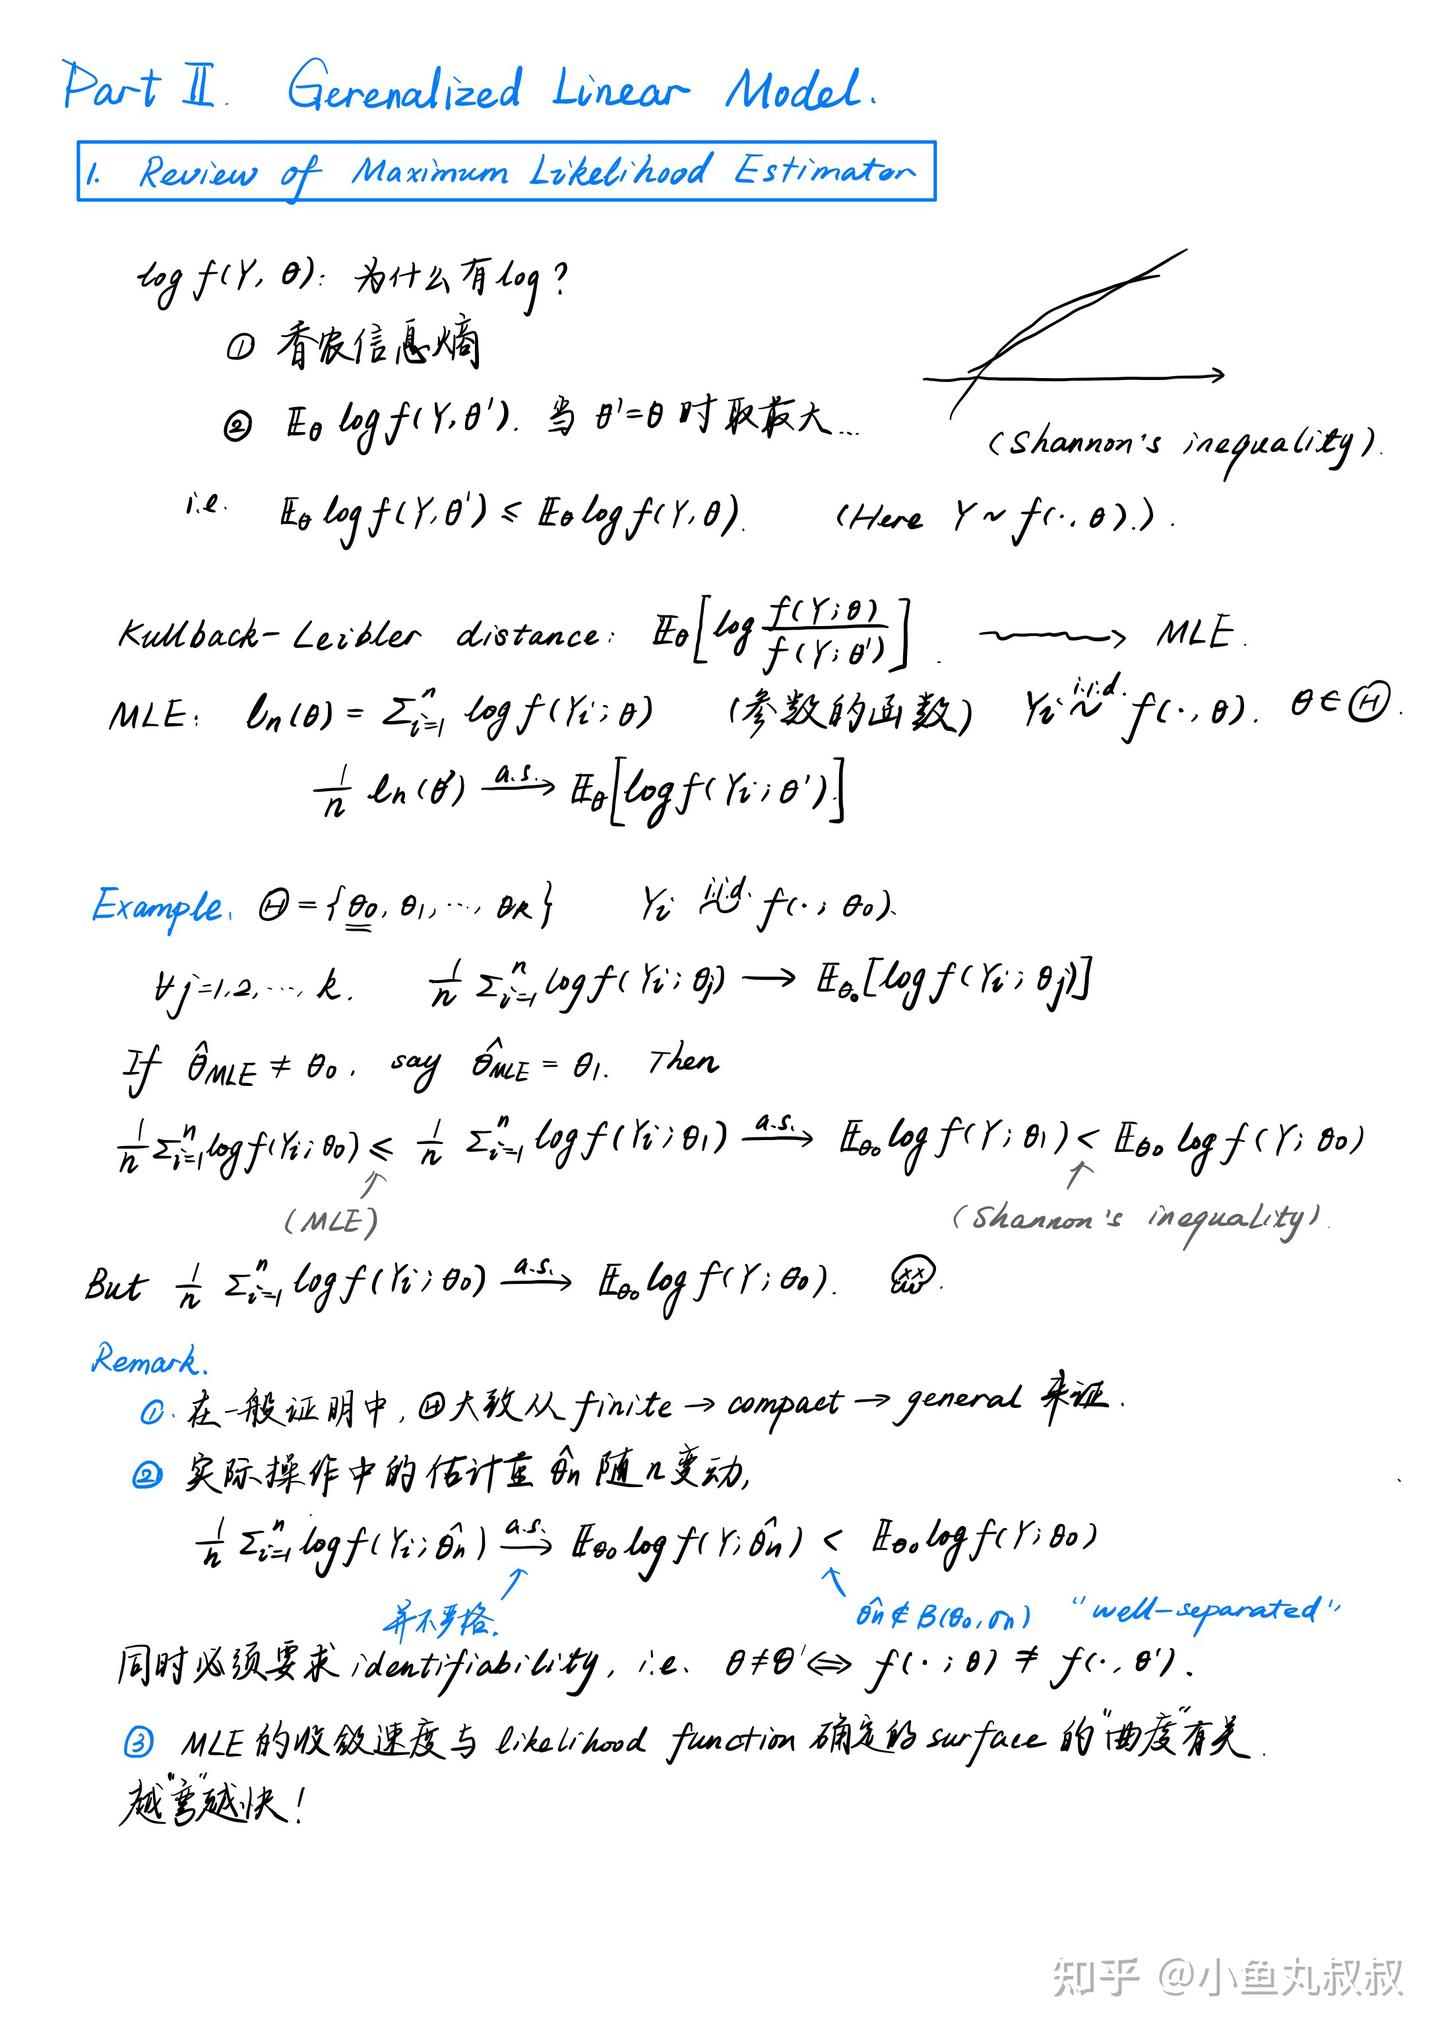 Part II. Gerenalized Linear Model.
1. Review of Maximum Likelihood Estimator
log f(Y, θ): 为什么有log?
① 香农信息熵
② 𝔼θ log f(Y, θ'). 当 θ'=θ 时取最大...
(Shannon's inequality).
i.e. 𝔼θ log f(Y, θ') ≤ 𝔼θ log f(Y, θ). (Here Y ~ f(·, θ).).
Kullback-Leibler distance: 𝔼θ[log f(Y;θ)/f(Y;θ')]. ⟿ MLE.
MLE: ln(θ) = Σᵢ₌₁ⁿ log f(Yi; θ) (参数的函数) Yi i.i.d.~ f(·, θ). θ ∈ Θ.
1/n ln(θ') a.s.→ 𝔼θ[log f(Yi; θ')]
Example. Θ = {θ0, θ1, ..., θk} Yi i.i.d.~ f(·; θ0).
∀j=1,2,..., k. 1/n Σᵢ₌₁ⁿ log f(Yi; θj) → 𝔼θ0[log f(Yi; θj)]
If θ̂MLE ≠ θ0, say θ̂MLE = θ1. Then
1/n Σᵢ₌₁ⁿ log f(Yi; θ0) ≤ 1/n Σᵢ₌₁ⁿ log f(Yi; θ1) a.s.→ 𝔼θ0 log f(Y; θ1) < 𝔼θ0 log f(Y; θ0)
(MLE) (Shannon's inequality).
But 1/n Σᵢ₌₁ⁿ log f(Yi; θ0) a.s.→ 𝔼θ0 log f(Y; θ0).
Remark.
①. 在一般证明中, Θ大致从 finite → compact → general 来证.
② 实际操作中的估计量 θ̂n 随 n 变动,
1/n Σᵢ₌₁ⁿ log f(Yi; θ̂n) a.s.→ 𝔼θ0 log f(Y; θ̂n) < 𝔼θ0 log f(Y; θ0)
并不严格. θ̂n ∉ B(θ0, σn) "well-separated"
同时必须要求 identifiability, i.e. θ≠θ' ⟺ f(·; θ) ≠ f(·, θ').
③ MLE 的收敛速度与 likelihood function 确定的 surface 的"曲度"有关.
越"弯"越快!
知乎 @小鱼丸叔叔